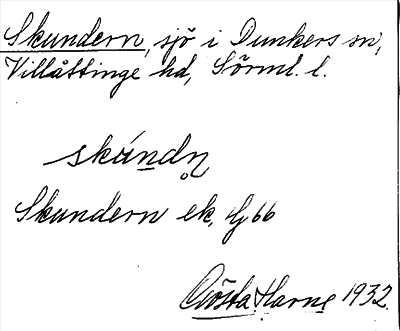 Skundern, sjö i Dunkers sn,
Villåttinge hd, Sörml. l.
skúndn̥
Skundern ek, G 66
Gösta Harne 1932.